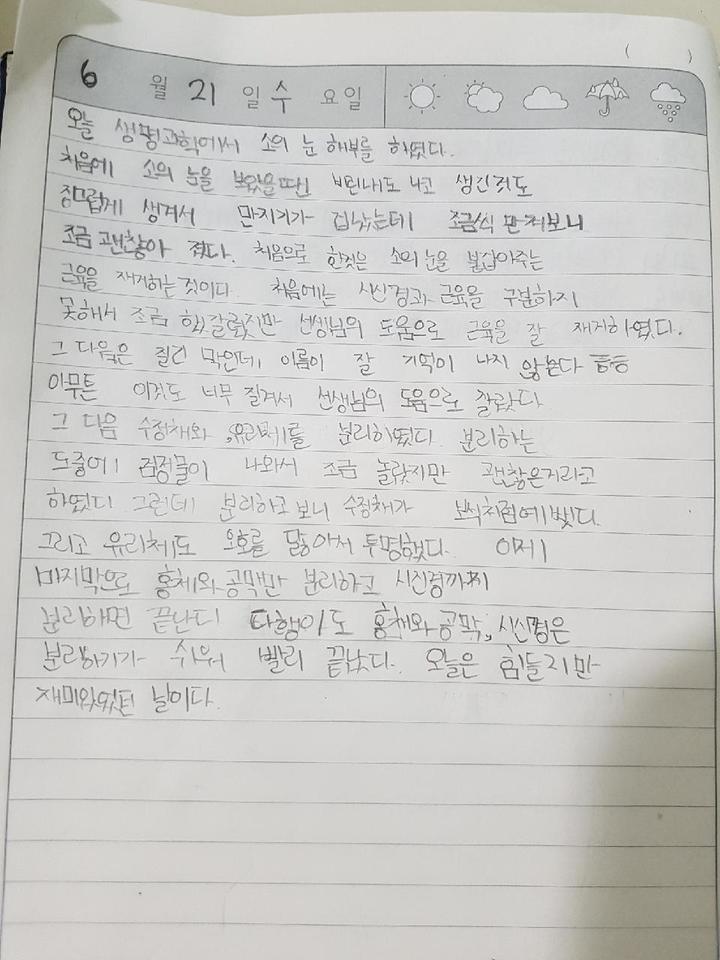 ( )
6 월 21 일 수 요일
오늘 생명과학에서 소의 눈 해부를 하였다.
처음에 소의 눈을 보았을땐 비린내도 나고 생긴것도
징그럽게 생겨서 만지기가 겁났는데 조금씩 만져보니
조금 괜찮아 졌다. 처음으로 한것은 소의 눈을 붙잡아주는
근육을 재거하는 것이다. 처음에는 시신경과 근육을 구분하지
못해서 조금 헷갈렸지만 선생님의 도움으로 근육을 잘 재거하였다.
그 다음은 질긴 막인데 이름이 잘 기억이 나지 않는다 ㅠㅠ
아무튼 이것도 너무 질겨서 선생님의 도움으로 잘랐다
그 다음 수정채와 유리체를 분리하였다 분리하는
도중에 검정물이 나와서 조금 놀랐지만 괜찮은거라고
하였다 그런데 분리하고 보니 수정채가 보석처럼 예뻤다.
그리고 유리체도 닮아서 투명했다. 이제
마지막으로 홍체와 공막만 분리하고 시신경까지
분리하면 끝난다 다행이도 홍채와 공막, 시신경은
분리하기가 쉬워 빨리 끝났다. 오늘은 힘들지만
재미있었던 날이다.